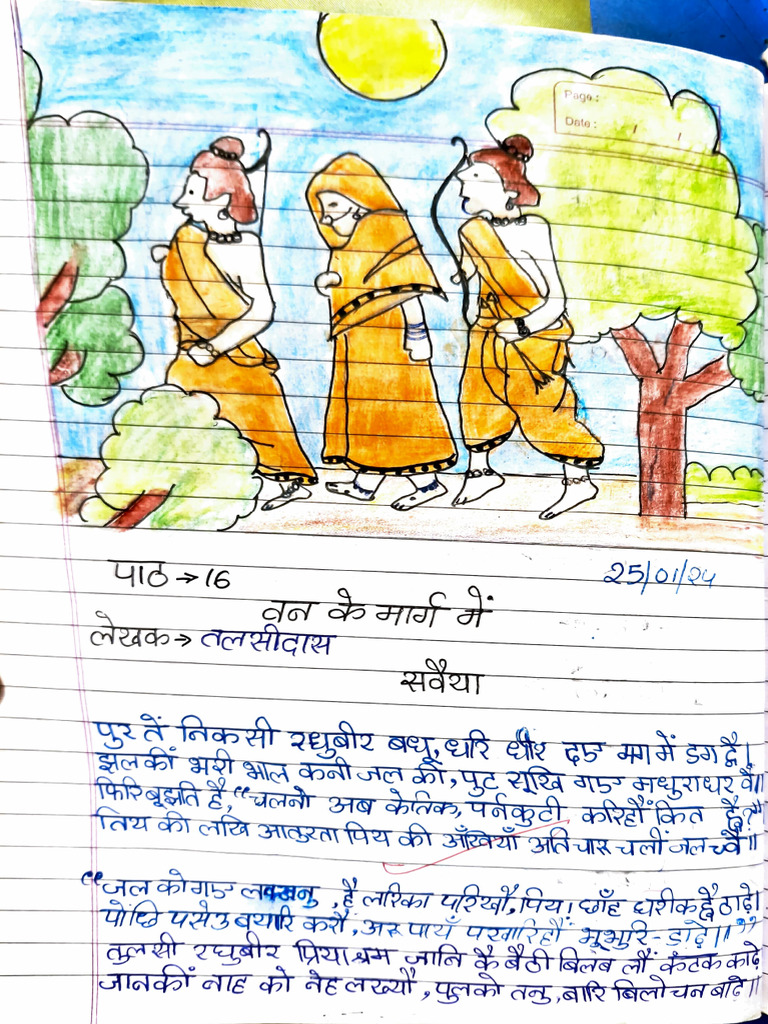 Page :
Date : / /
पाठ → 16
25/01/24
वन के मार्ग में
लेखक → तलसीदास
सवैया
पुर तें निकसी रघुबीर बधू, धरि धीर दए मग में डग द्वै।
झलकीं भरी भाल कनी जल की, पुट सूखि गए मधुराधर वै॥
फिरि बूझति हैं, "चलनो अब केतिक, पर्नकुटी करिहौं कित ह्वै?"
तिय की लखि आतुरता पिय की अँखियाँ अति चारू चलीं जल च्वै॥
"जल को गए लक्खनु, हैं लरिका परिखौ, पिय! छाँह घरीक ह्वै ठाढ़े।
पोंछि पसेउ बयारि करौं, अरू पायँ पखारिहौं भूभुरि-डाढ़े॥"
तुलसी रघुबीर प्रियाश्रम जानि कै बैठी बिलंब लौं कंटक काढ़े
जानकीं नाह को नेह लख्यौ, पुलको तनु, बारि बिलोचन बाढ़े॥